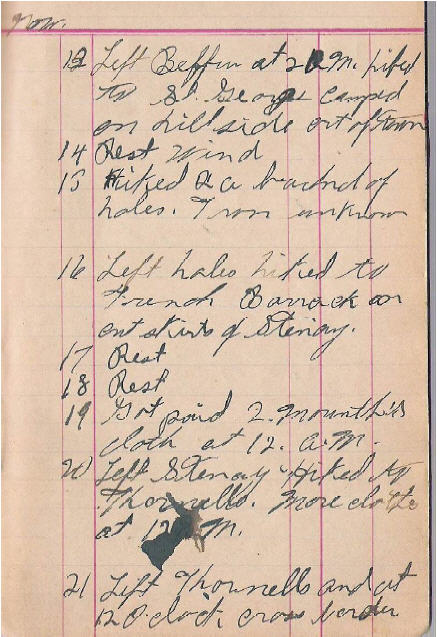 Nov.
13 Left Beffu at 2 P.M. hiked
to St. George camped
on hill side out of town
14 Rest wind
15 Hiked to a bunch of
holes. Town unknow
16 Left holes hiked to
French Barrack on
out skirts of Stenay.
17 Rest
18 Rest
19 Got paid 2. mounth's
cloth at 12. A.M.
20 Left Stenay Hiked to
Thonnells. More clothe
at 12 M.
21 Left Thonnells and at
12 O'clock cross border